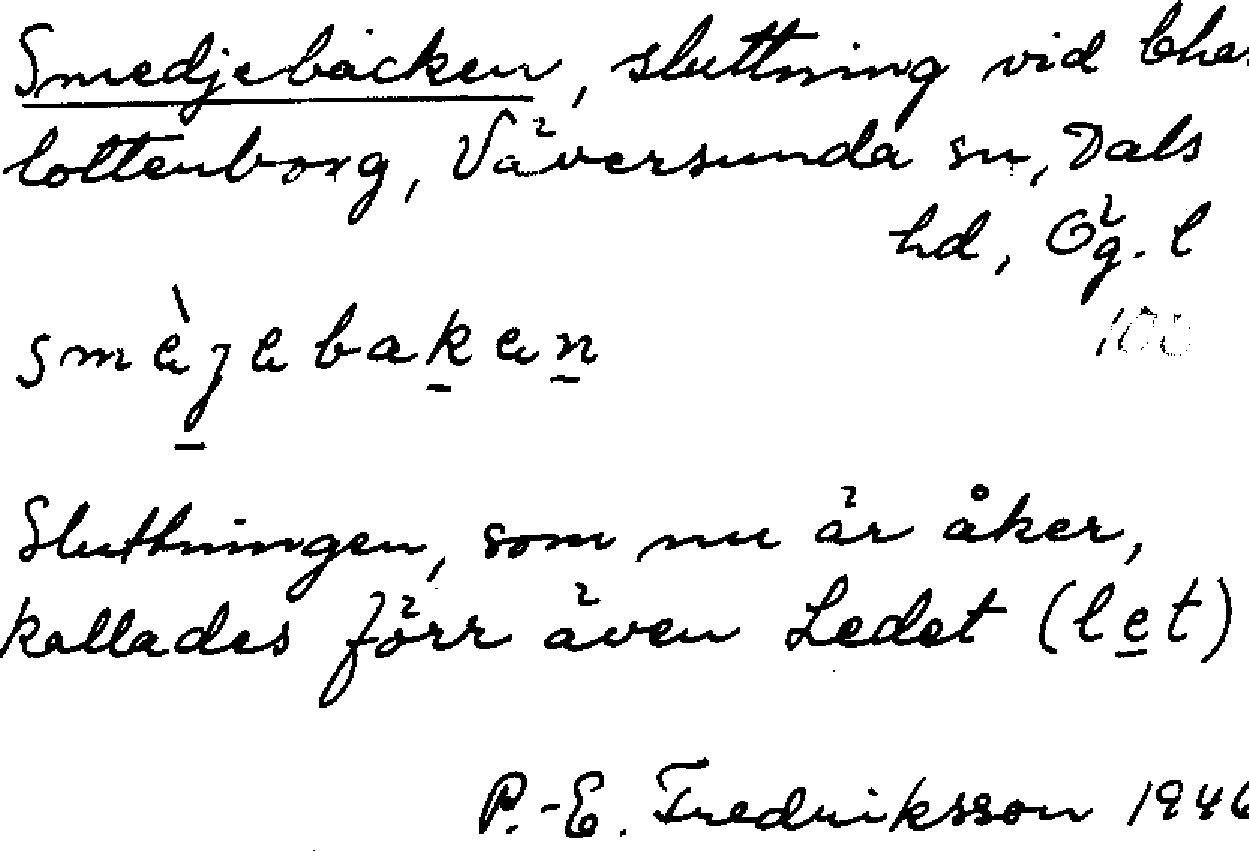 Smedjebacken, sluttning vid Cha
lottenborg, Väversunda sn, Dals
hd, Ög. l
100
smèjebaken
Sluttningen, som nu är åker,
kallades förr även Ledet (let)
P.-E. Fredriksson 1946